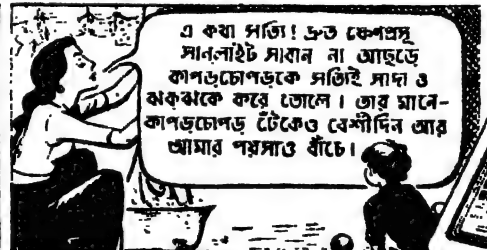 এ কথা সত্যি! দ্রুত ফেণপ্রসূ
সানলাইট সাবান না আছড়ে
কাপড়চোপড়কে সত্যিই সাদা ও
ঝক্‌ঝকে করে তোলে। তার মানে-
কাপড়চোপড় টেঁকেও বেশীদিন আর
আমার পয়সাও বাঁচে।